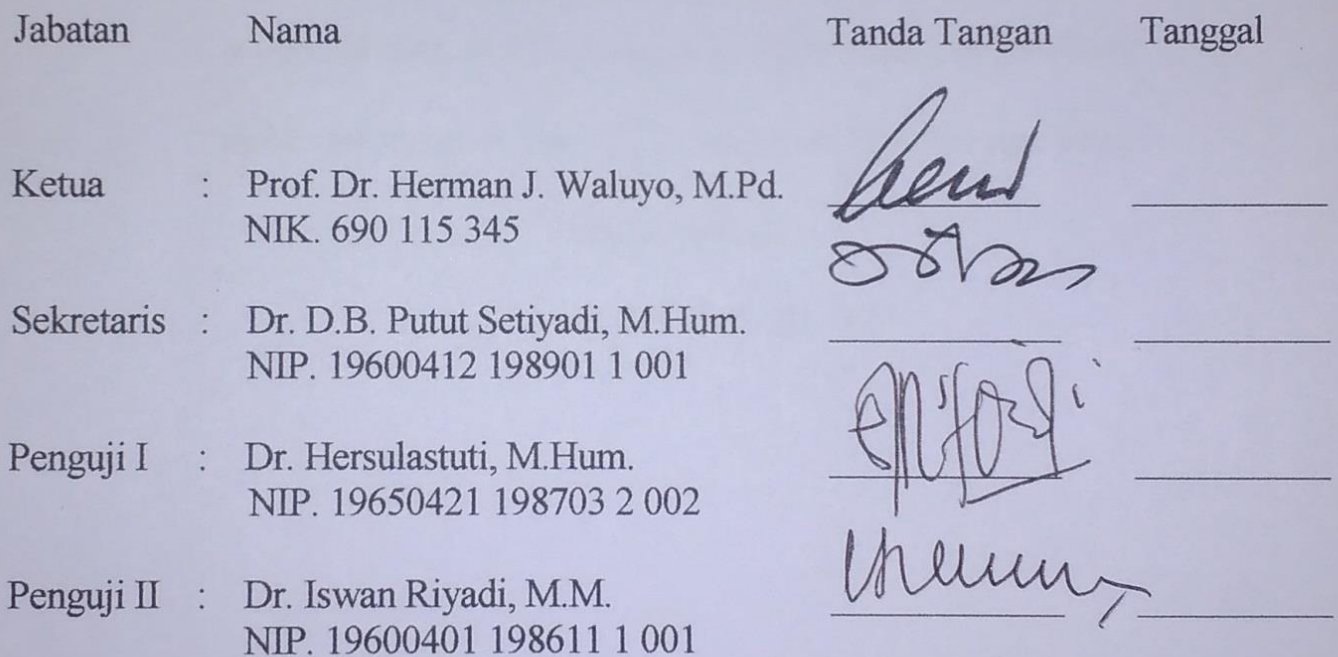 Jabatan Nama Tanda Tangan Tanggal
Ketua : Prof. Dr. Herman J. Waluyo, M.Pd.
NIK. 690 115 345
Sekretaris : Dr. D.B. Putut Setiyadi, M.Hum.
NIP. 19600412 198901 1 001
Penguji I : Dr. Hersulastuti, M.Hum.
NIP. 19650421 198703 2 002
Penguji II : Dr. Iswan Riyadi, M.M.
NIP. 19600401 198611 1 001